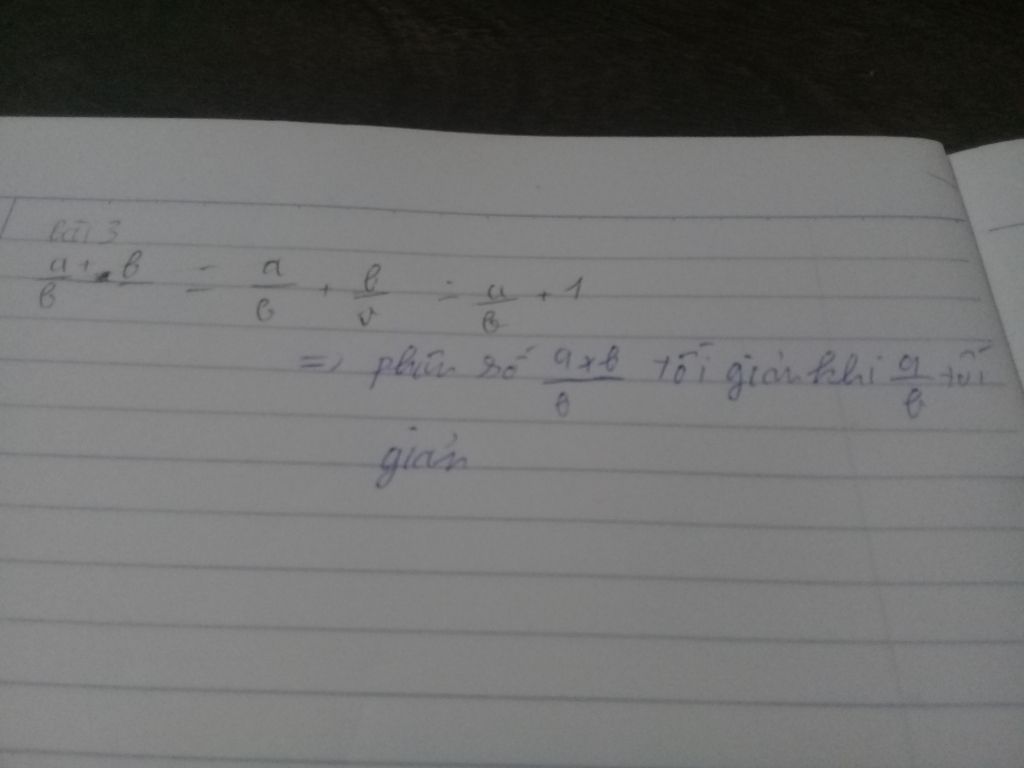 bài 3
a + b / b = a / b + b / b = a / b + 1
=> phân số a+b / b tối giản khi a / b tối
giản